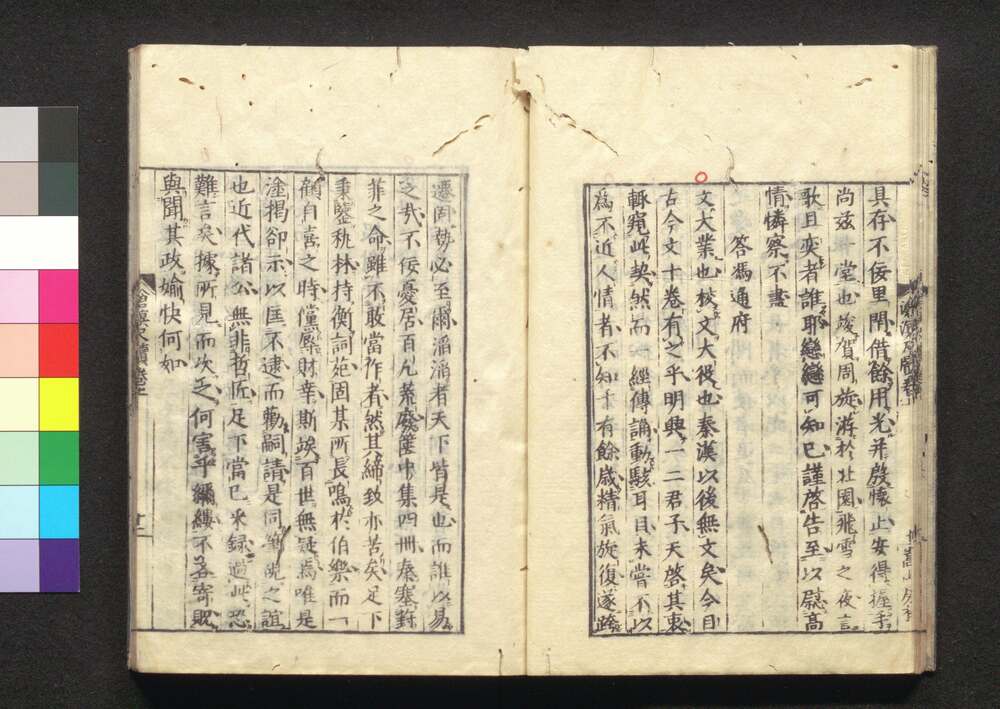 具存不佞里閈借餘用光并啓懷止安得握手
尚茲一堂也竣賀周旋游於壯園飛雪之夜言
歌且奕者誰耶戀戀可知已謹啓告至以慰高
情憐察不盡
答馮通府
文大業也校文大役也秦漢以後無文矣今目
古今文十卷有之乎明興一二君子天啓其衷
輙窺此契然而一經傳誦動駭耳目未嘗不以
爲不近人情者不知才有餘歲精氣旋復遂跡
遷固勢必至爾滔滔者天下皆是也而誰以易
之哉不佞憂居百凡蕪廢篋中集四冊奉塞對
菲之命雖不敢當作者然其綿致亦苦矣足下
秉鑒秇林持衡詞苑固某所長鳴於伯樂而一
顧自喜之時僅櫽財幸斯竢百世無疑焉唯是
塗揭卻示以匡不逮而勸嗣請是同筆硯之誼
也近代諸公無非哲匠足下當已采録過此恐
難言矣據所見而次之何害乎繼縷不盡寄貺
與聞其政愉快何如